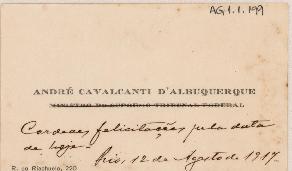 AG1.1.199
ANDRÉ CAVALCANTI D'ALBUQUERQUE
MINISTRO DO SUPREMO TRIBUNAL FEDERAL
Cordeaes felicitações pela data
de hoje.
Rio, 12 de Agosto de 1917.
R. do Riachuelo, 220